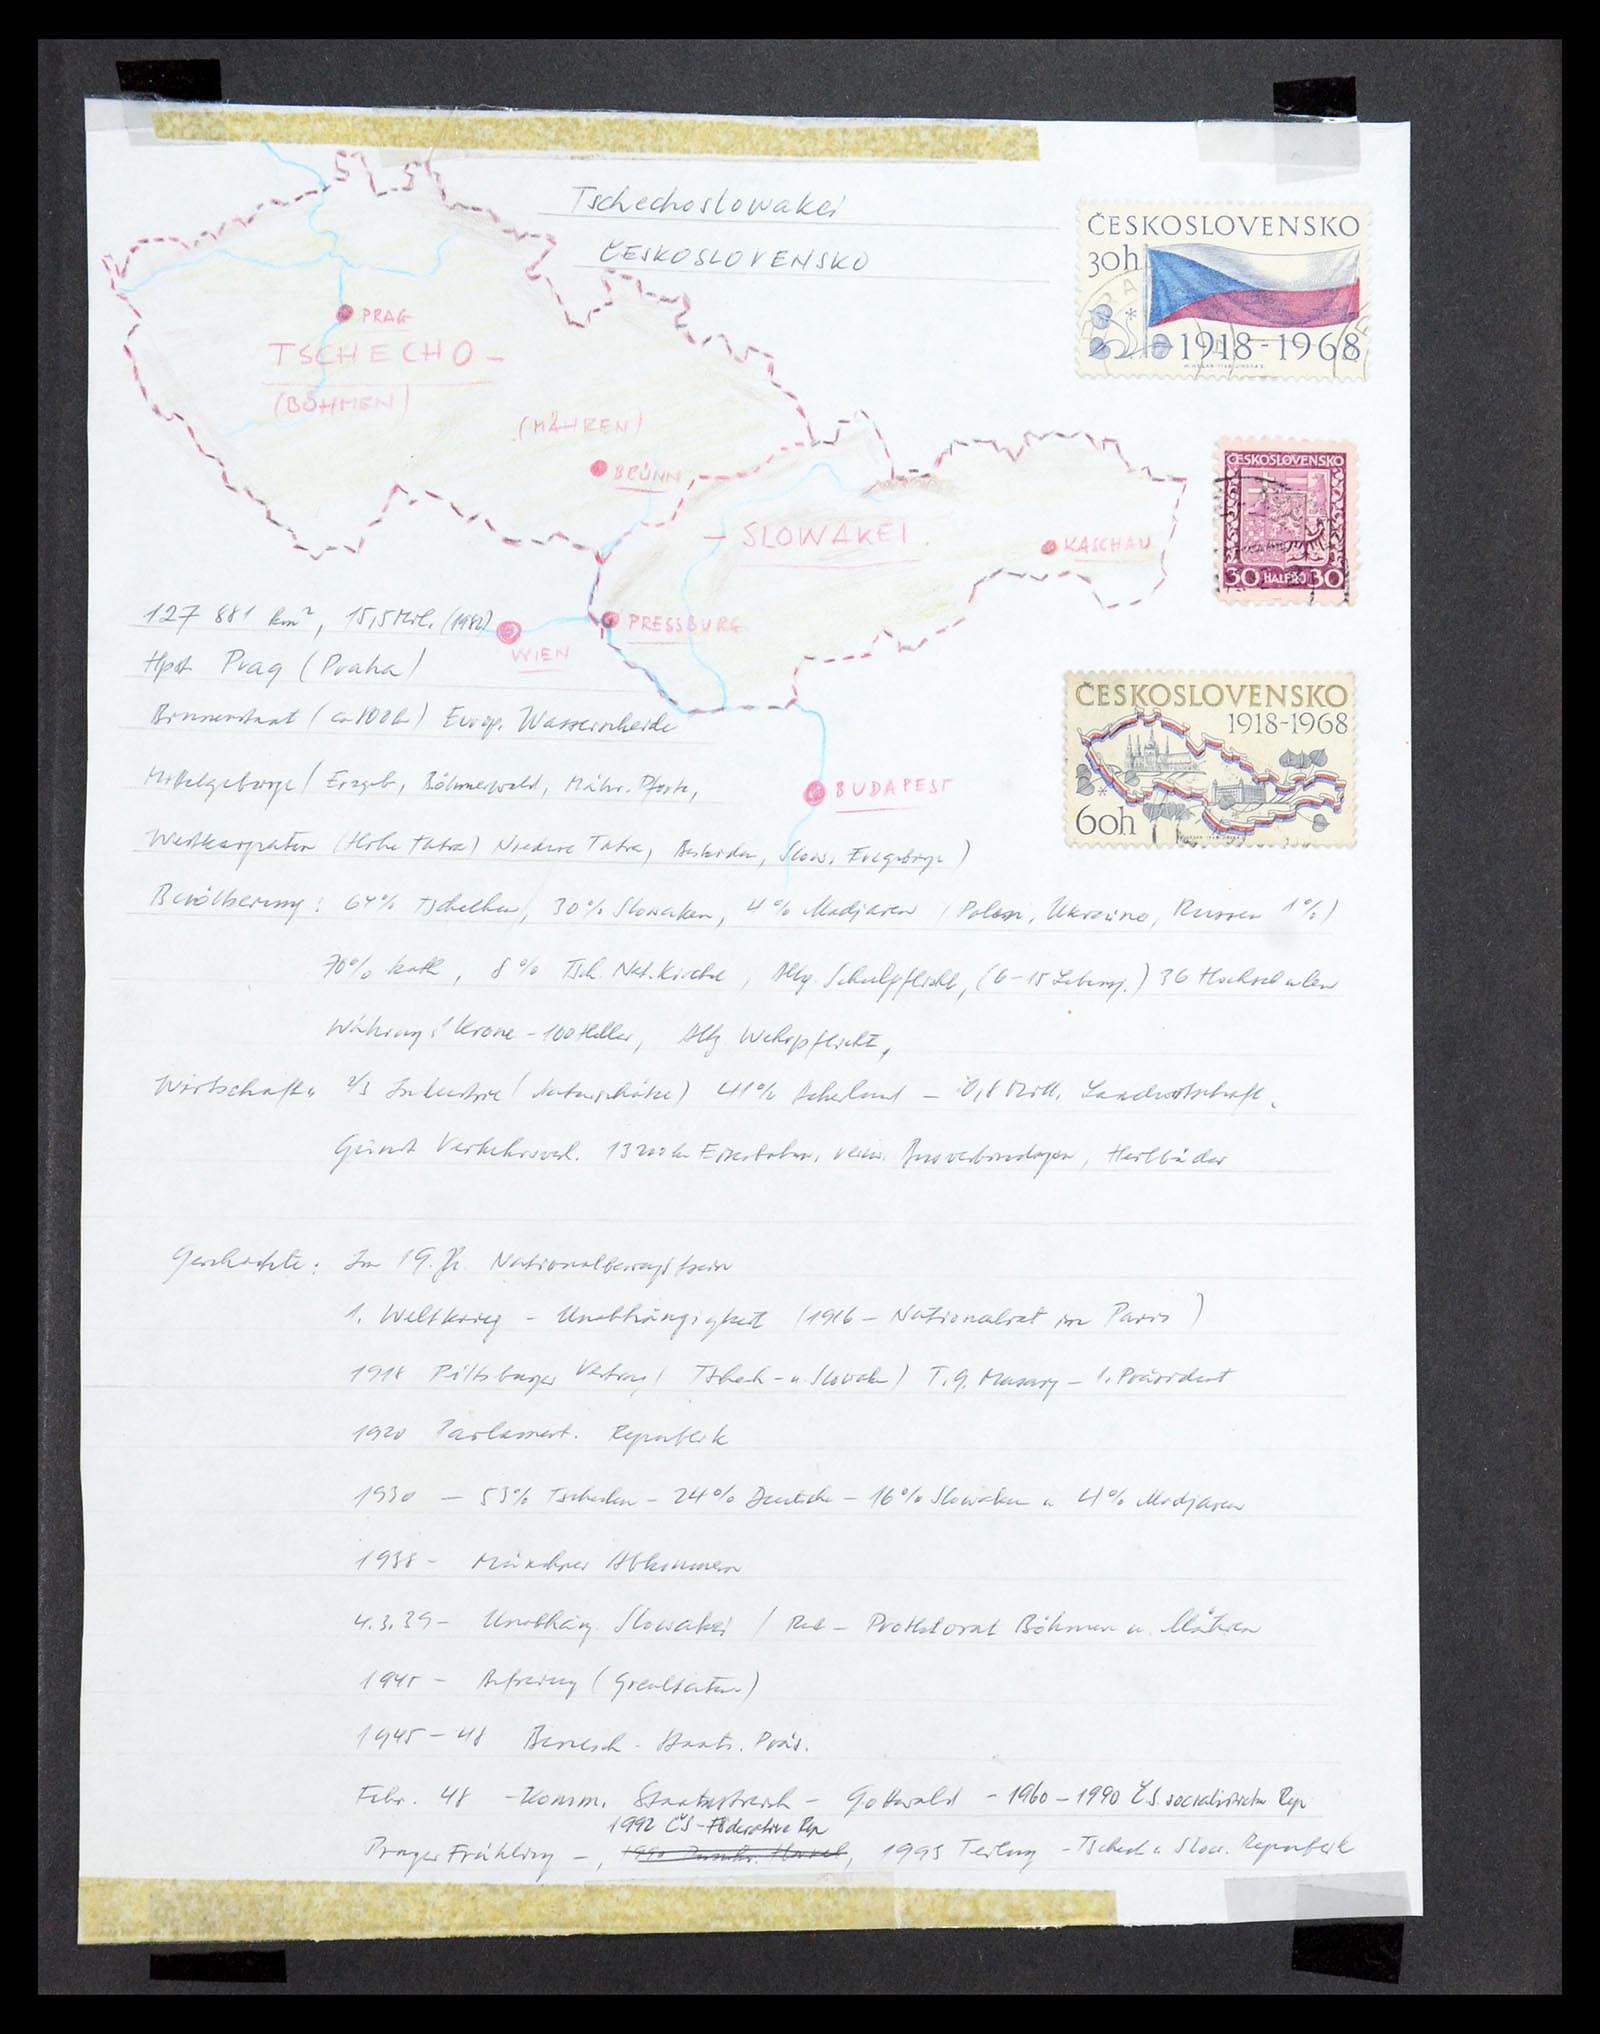 Tschechoslowakei
ČESKOSLOVENSKO
ČESKOSLOVENSKO
30h
1918-1968
PRAG
TSCHECHO -
(BÖHMEN)
(MÄHREN)
BRÜNN
- SLOWAKEI
KASCHAU
PRESSBURG
WIEN
BUDAPEST
ČESKOSLOVENSKO
30 HALÉŘŮ 30
ČESKOSLOVENSKO
1918-1968
60h
127 881 km², 15,5 Mill. (1982)
Hpst Prag (Praha)
Binnenstaat ( Europ. Wasserscheide
Mittelgebirge ( Erzgeb., Böhmerwald, Mähr. Pforte,
Westkarpaten (Hohe Tatra) Niedere Tatra, Beskiden, Slow. Erzgebirge )
Bevölkerung: 64% Tschechen, 30% Slowaken, 4% Madjaren (Polen, Ukraine, Russen 1%)
70% kath, 8% Tsch. Nat. Kirche, Allg. Schulpflicht, (6-15 Lebensj.) 36 Hochschulen
Währung: 1 Krone - 100 Heller, Allg Wehrpflicht,
Wirtschaft: 2/3 Industrie (Naturschätze) 41% Ackerland - 0,8 Mill. Landwirtschaft.
Günst Verkehrsverl. 13200 km Eisenbahn, Busverbindungen, Heilbäder
Geschichte: Im 19. Jh. Nationalbewußtsein
1. Weltkrieg - Unabhängigkeit (1916 - Nationalrat in Paris )
1918 Pittsburger Vertrag ( Tschech- u. Slowak ) T.G. Masary - 1. Präsident
1920 Parlament. Republik
1930 - 53% Tschechen - 24% Deutsche - 16% Slowaken u 4% Madjaren
1938 - Münchner Abkommen
4.3.39 - Unabhäng. Slowakei / Rest - Protektorat Böhmen u. Mähren
1945 - Befreiung (Greultaten)
1945 - 48 Benesch - Staats. Präs.
Febr. 48 - Komm. Staatsstreich - Gottwald - 1960 - 1990 ČS socialistische Rep
1992 ČS - Föderative Rep
Prager Frühling -, 1993 Teilung - Tschech u. Slow. Republik